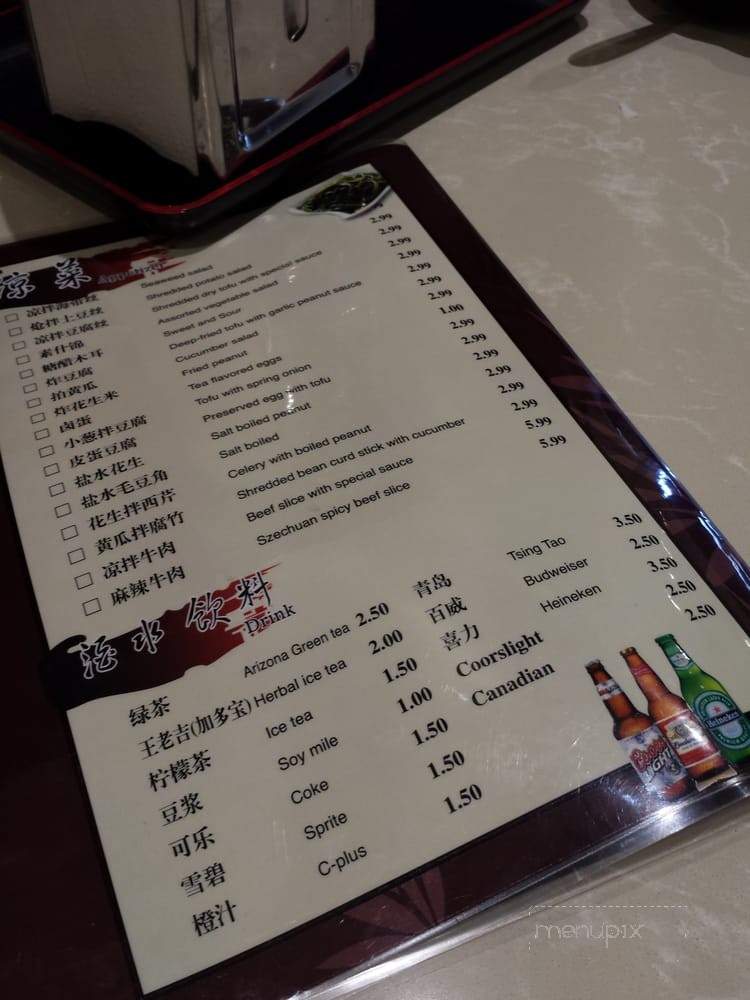 凉菜 Appetizer
□ 凉拌海带丝 Seaweed salad
□ 炝拌土豆丝 Shredded potato salad 2.99
□ 凉拌豆腐丝 Shredded dry tofu with special sauce 2.99
□ 素什锦 Assorted vegetable salad 2.99
□ 糖醋木耳 Sweet and Sour 2.99
□ 炸豆腐 Deep-fried tofu with garlic peanut sauce 2.99
□ 拍黄瓜 Cucumber salad 2.99
□ 炸花生米 Fried peanut 2.99
□ 卤蛋 Tea flavored eggs 1.00
□ 小葱拌豆腐 Tofu with spring onion 2.99
□ 皮蛋豆腐 Preserved egg with tofu 2.99
□ 盐水花生 Salt boiled peanut 2.99
□ 盐水毛豆角 Salt boiled 2.99
□ 花生拌西芹 Celery with boiled peanut 2.99
□ 黄瓜拌腐竹 Shredded bean curd stick with cucumber 2.99
□ 凉拌牛肉 Beef slice with special sauce 5.99
□ 麻辣牛肉 Szechuan spicy beef slice 5.99
酒水饮料 Drink
绿茶 Arizona Green tea 2.50
王老吉(加多宝) Herbal ice tea 2.00
柠檬茶 Ice tea 1.50
豆浆 Soy mile 1.00
可乐 Coke 1.50
雪碧 Sprite 1.50
橙汁 C-plus 1.50
青岛 Tsing Tao 3.50
百威 Budweiser 2.50
喜力 Heineken 3.50
Coorslight 2.50
Canadian 2.50
Heineken
menupix